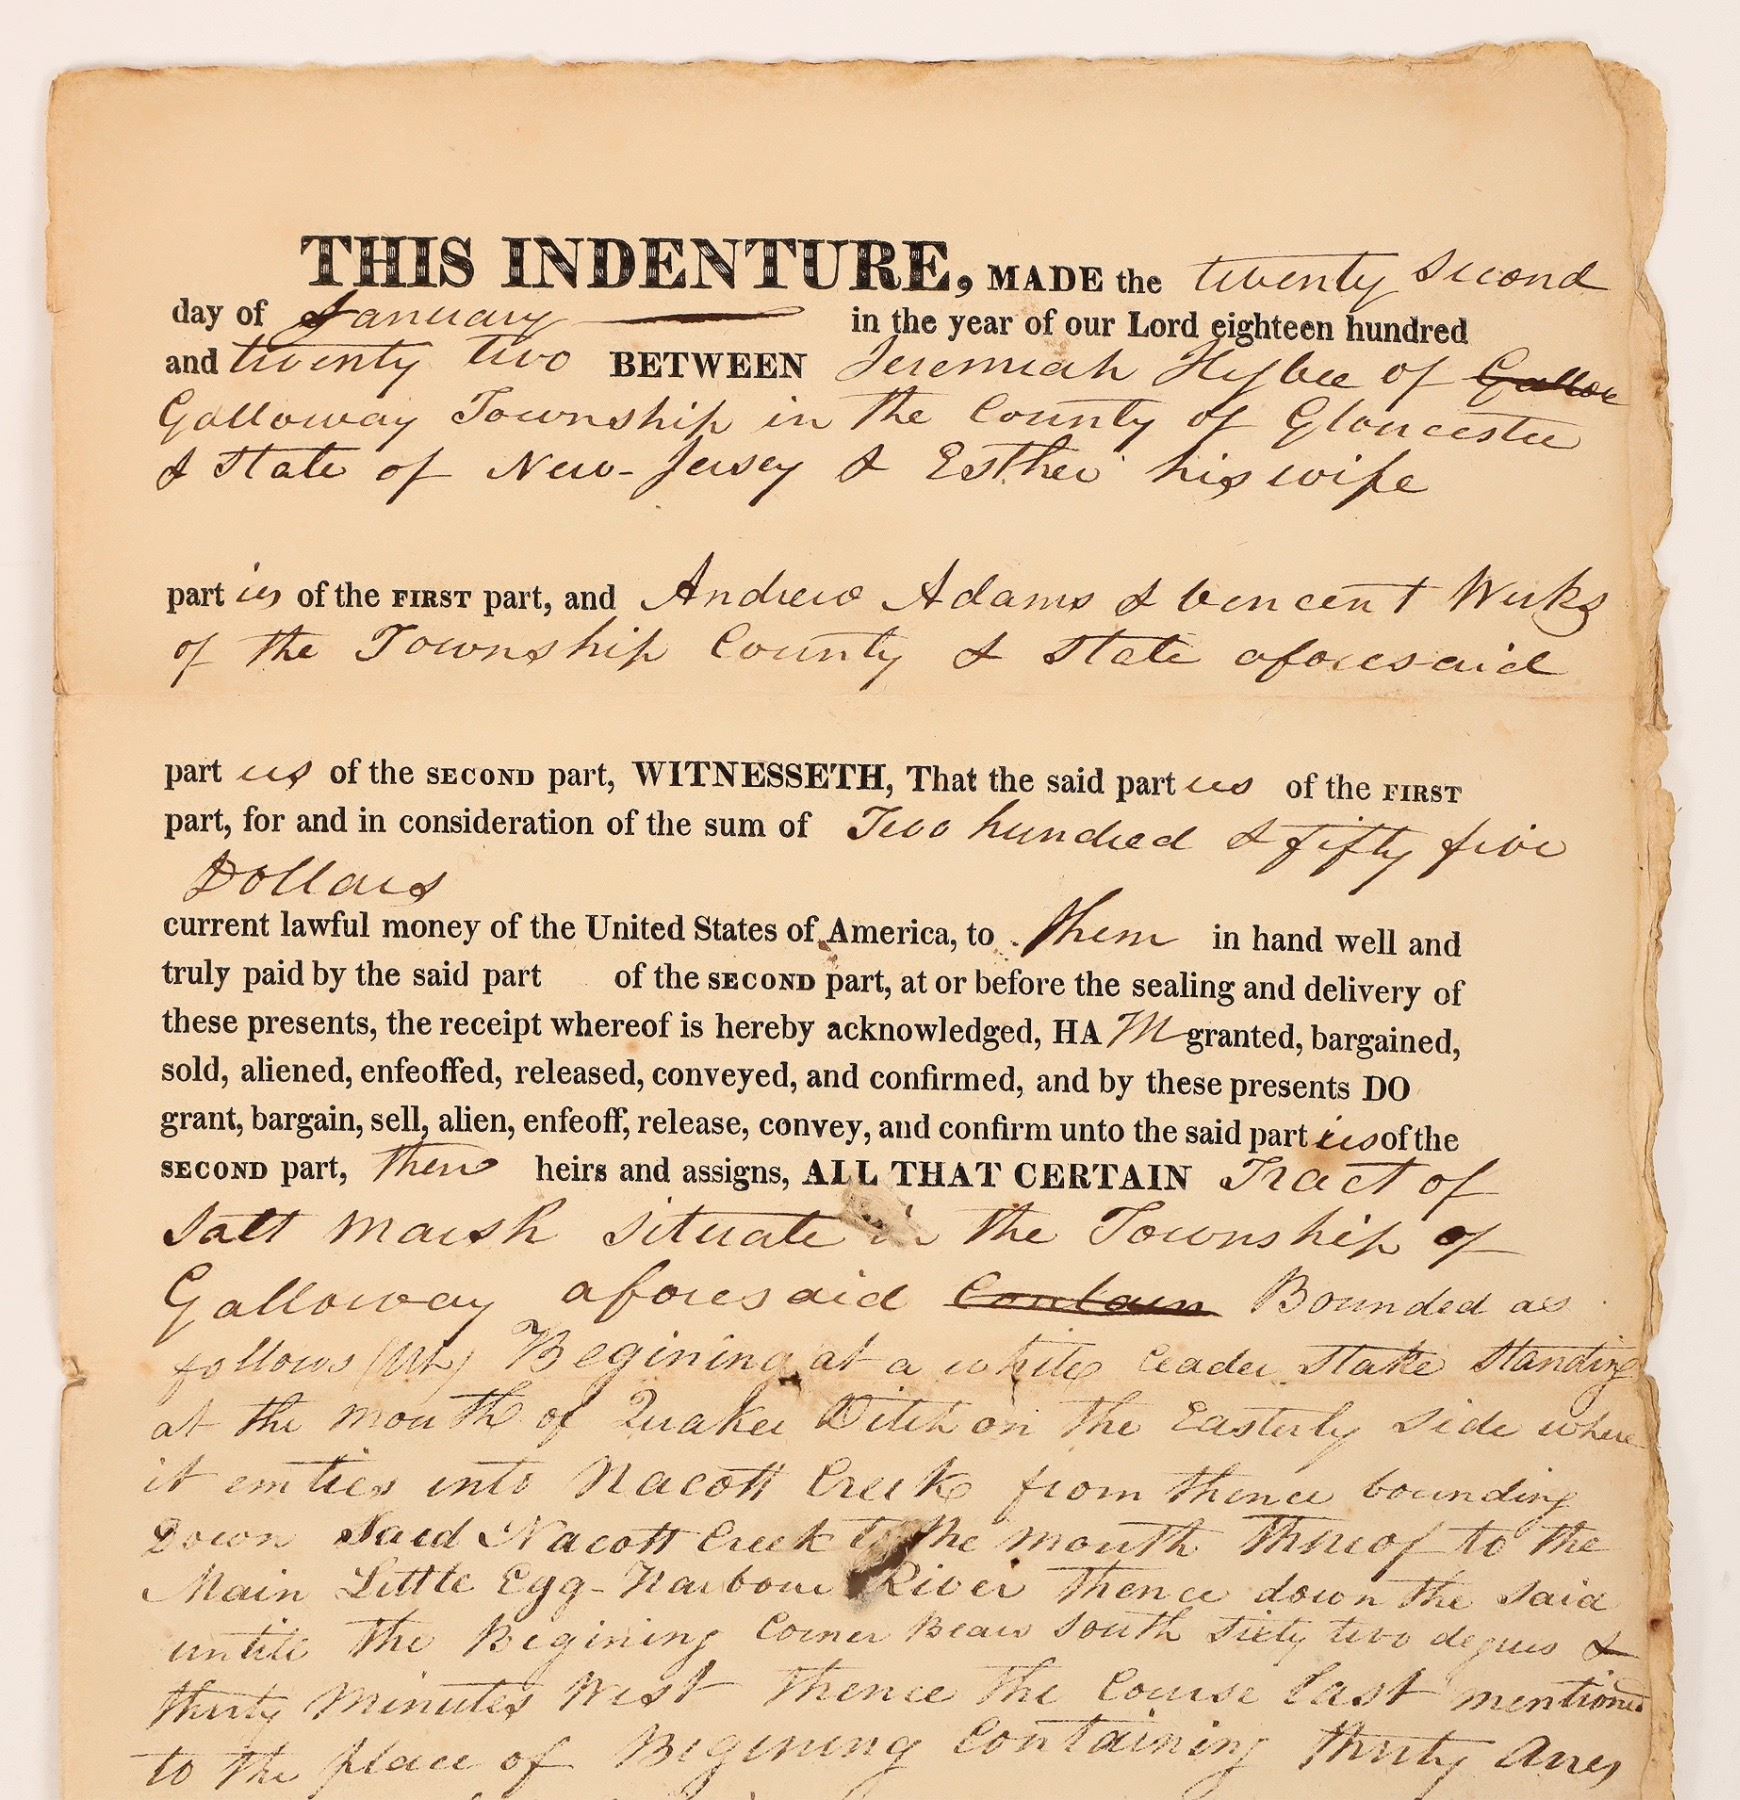 THIS INDENTURE, MADE the twenty second
day of January in the year of our Lord eighteen hundred
and twenty two BETWEEN Jeremiah Higbee of Gallow
Galloway Township in the County of Gloucester
& State of New-Jersey & Esther his wife
part ies of the FIRST part, and Andrew Adams & Vencent Weeks
of the Township County & State aforesaid
part ies of the SECOND part, WITNESSETH, That the said part ies of the FIRST
part, for and in consideration of the sum of Two hundred & fifty five
Dollars
current lawful money of the United States of America, to them in hand well and
truly paid by the said part of the SECOND part, at or before the sealing and delivery of
these presents, the receipt whereof is hereby acknowledged, HA granted, bargained,
sold, aliened, enfeoffed, released, conveyed, and confirmed, and by these presents DO
grant, bargain, sell, alien, enfeoff, release, convey, and confirm unto the said part ies of the
SECOND part, their heirs and assigns, ALL THAT CERTAIN Tract of
Salt marsh situate in the Township of
Galloway aforesaid Contain Bounded as
follows Begining at a white Ceader Stake Standing
at the mouth of Quaker Ditch on the Easterly Side where
it emties into Nacott Creek from thence bounding
Down Said Nacott Creek to the mouth thereof to the
Main Little Egg-Harbour River thence down the said
untile the Begining Corner Bears South Sixty two degrees &
thirty Minutes West thence the Course last mentioned
to the place of Begining Containing thirty Acres